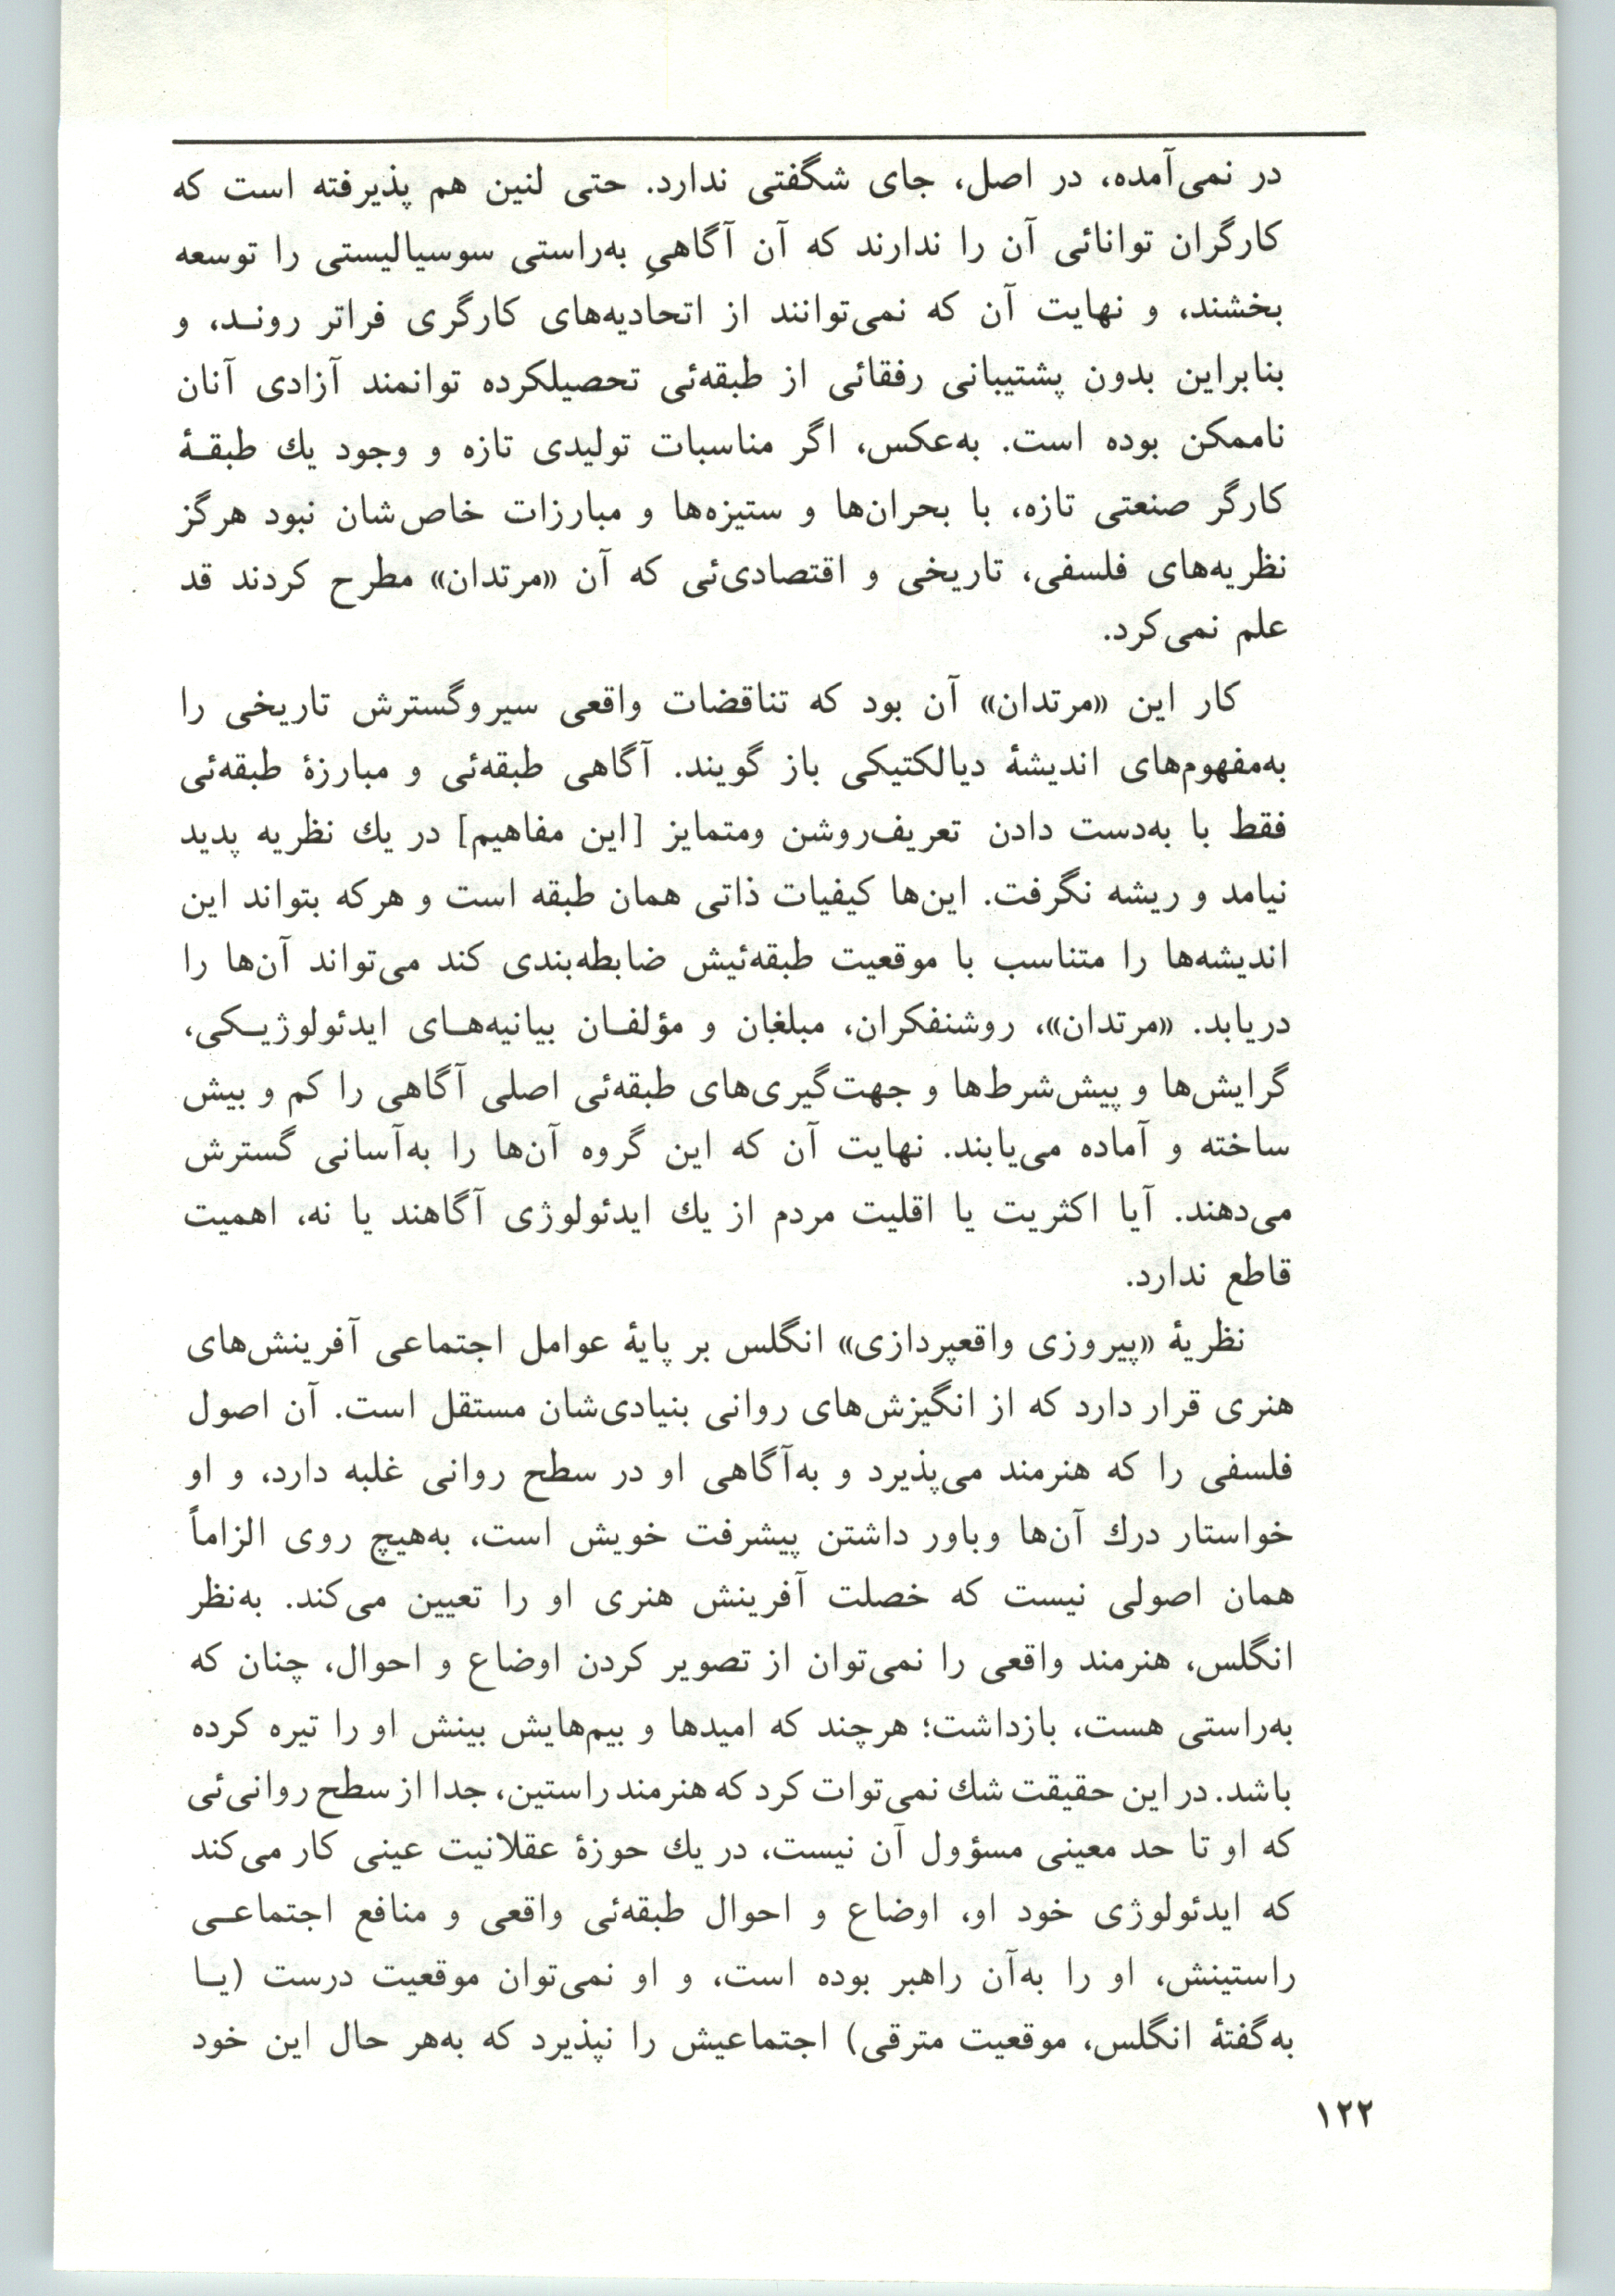 در نمی‌آمده، در اصل، جای شگفتی ندارد. حتی لنین هم پذیرفته است که
کارگران توانائی آن را ندارند که آن آگاهیِ به‌راستی سوسیالیستی را توسعه
بخشند، و نهایت آن که نمی‌توانند از اتحادیه‌های کارگری فراتر رونـد، و
بنابراین بدون پشتیبانی رفقائی از طبقه‌ئی تحصیلکرده توانمند آزادی آنان
ناممکن بوده است. به‌عکس، اگر مناسبات تولیدی تازه و وجود یك طبقـۀ
کارگر صنعتی تازه، با بحران‌ها و ستیزه‌ها و مبارزات خاص‌شان نبود هرگز
نظریه‌های فلسفی، تاریخی و اقتصادی‌ئی که آن «مرتدان» مطرح کردند قد
علم نمی‌کرد.
کار این «مرتدان» آن بود که تناقضات واقعی سیروگسترش تاریخی را
به‌مفهوم‌های اندیشۀ دیالکتیکی باز گویند. آگاهی طبقه‌ئی و مبارزۀ طبقه‌ئی
فقط با به‌دست دادن تعریف‌روشن ومتمایز [این مفاهیم] در یك نظریه پدید
نیامد و ریشه نگرفت. این‌ها کیفیات ذاتی همان طبقه است و هرکه بتواند این
اندیشه‌ها را متناسب با موقعیت طبقه‌ئیش ضابطه‌بندی کند می‌تواند آن‌ها را
دریابد. «مرتدان»، روشنفکران، مبلغان و مؤلفـان بیانیه‌هـای ایدئولوژیـکی،
گرایش‌ها و پیش‌شرط‌ها و جهت‌گیری‌های طبقه‌ئی اصلی آگاهی را کم و بیش
ساخته و آماده می‌یابند. نهایت آن که این گروه آن‌ها را به‌آسانی گسترش
می‌دهند. آیا اکثریت یا اقلیت مردم از یك ایدئولوژی آگاهند یا نه، اهمیت
قاطع ندارد.
نظریۀ «پیروزی واقعپردازی» انگلس بر پایۀ عوامل اجتماعی آفرینش‌های
هنری قرار دارد که از انگیزش‌های روانی بنیادی‌شان مستقل است. آن اصول
فلسفی را که هنرمند می‌پذیرد و به‌آگاهی او در سطح روانی غلبه دارد، و او
خواستار درك آن‌ها وباور داشتن پیشرفت خویش است، به‌هیچ روی الزاماً
همان اصولی نیست که خصلت آفرینش هنری او را تعیین می‌کند. به‌نظر
انگلس، هنرمند واقعی را نمی‌توان از تصویر کردن اوضاع و احوال، چنان که
به‌راستی هست، بازداشت؛ هرچند که امیدها و بیم‌هایش بینش او را تیره کرده
باشد. در این حقیقت شك نمی‌توات کرد که هنرمند راستین، جدا از سطح روانی‌ئی
که او تا حد معینی مسؤول آن نیست، در یك حوزۀ عقلانیت عینی کار می‌کند
که ایدئولوژی خود او، اوضاع و احوال طبقه‌ئی واقعی و منافع اجتماعـی
راستینش، او را به‌آن راهبر بوده است، و او نمی‌توان موقعیت درست (یـا
به‌گفتۀ انگلس، موقعیت مترقی) اجتماعیش را نپذیرد که به‌هر حال این خود
۱۲۲